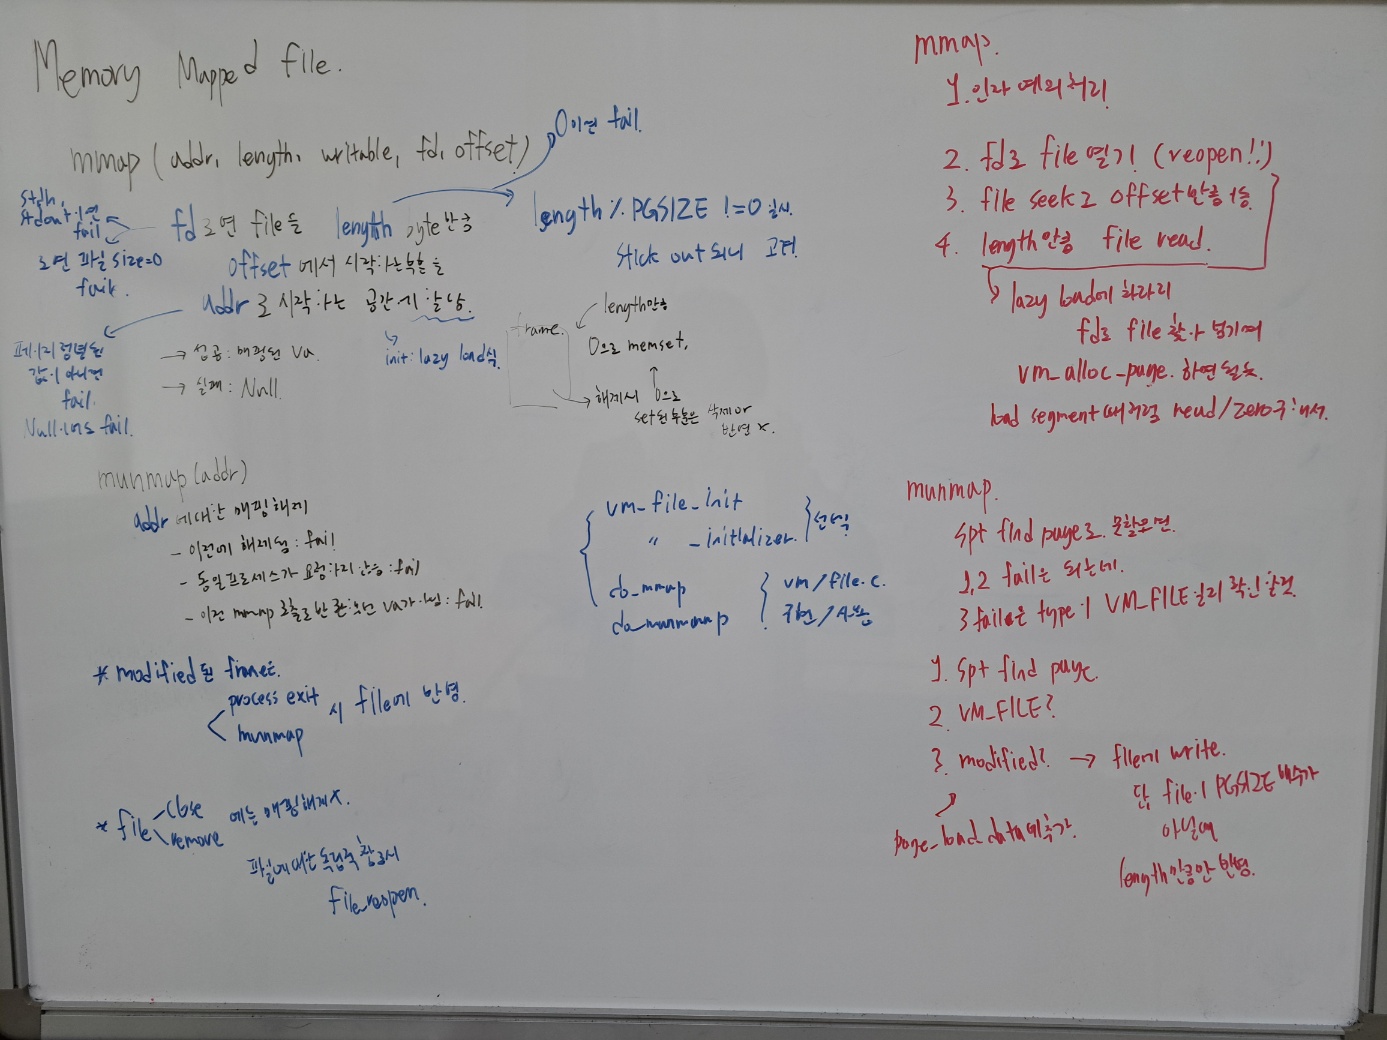 Memory Mapped file.
mmap (addr, length, writable, fd, offset)
0이면 fail.
stdin,
stdout이면
fail
fd로 연 file을 length byte만큼
length % PGSIZE != 0 일시.
stick out되니 고려
로연 파일 size=0
fail.
offset에서 시작하는 부분을
addr로 시작하는 공간에 할당.
페이지 정렬된
값이 아니면
fail.
Null이어도 fail.
→ 성공: 매핑된 va.
→ 실패: Null.
init: lazy load식
frame.
length만큼
0으로 memset.
해제시 0으로
set된 부분은 삭제 or
반영 x.
munmap (addr)
addr에 대한 매핑 해제
- 이전에 해제됨: fail
- 동일 프로세스가 요청하지 않음: fail
- 이전 mmap 호출로 반환했던 va가 아님: fail
* modified 된 frame.
process exit
munmap
시 file에 반영.
* file
close
remove
에는 매핑해제 x.
파일에 대한 독립적 참조시
file_reopen.
vm_file_init
〃 _initializer.
do_mmap
do_munmap
vm/file.c.
mmap.
1. 인자 예외처리
2. fd로 file 열기 (reopen!!)
3. file seek로 offset만큼 이동.
4. length만큼 file read.
lazy load에
fd로 file 찾아 넘기며
vm_alloc_page. 하면 될듯.
load segment때처럼 read/zero 구해서.
munmap.
spt find page로 못찾으면.
1,2 fail은 되는데.
3 fail은 type이 VM_FILE인지 확인할것.
1. spt find page.
2 VM_FILE?
3. modified? → file에 write.
단, file이 PGSIZE 배수가
아닐때
length만큼만 반영.
page_load_data에 추가.